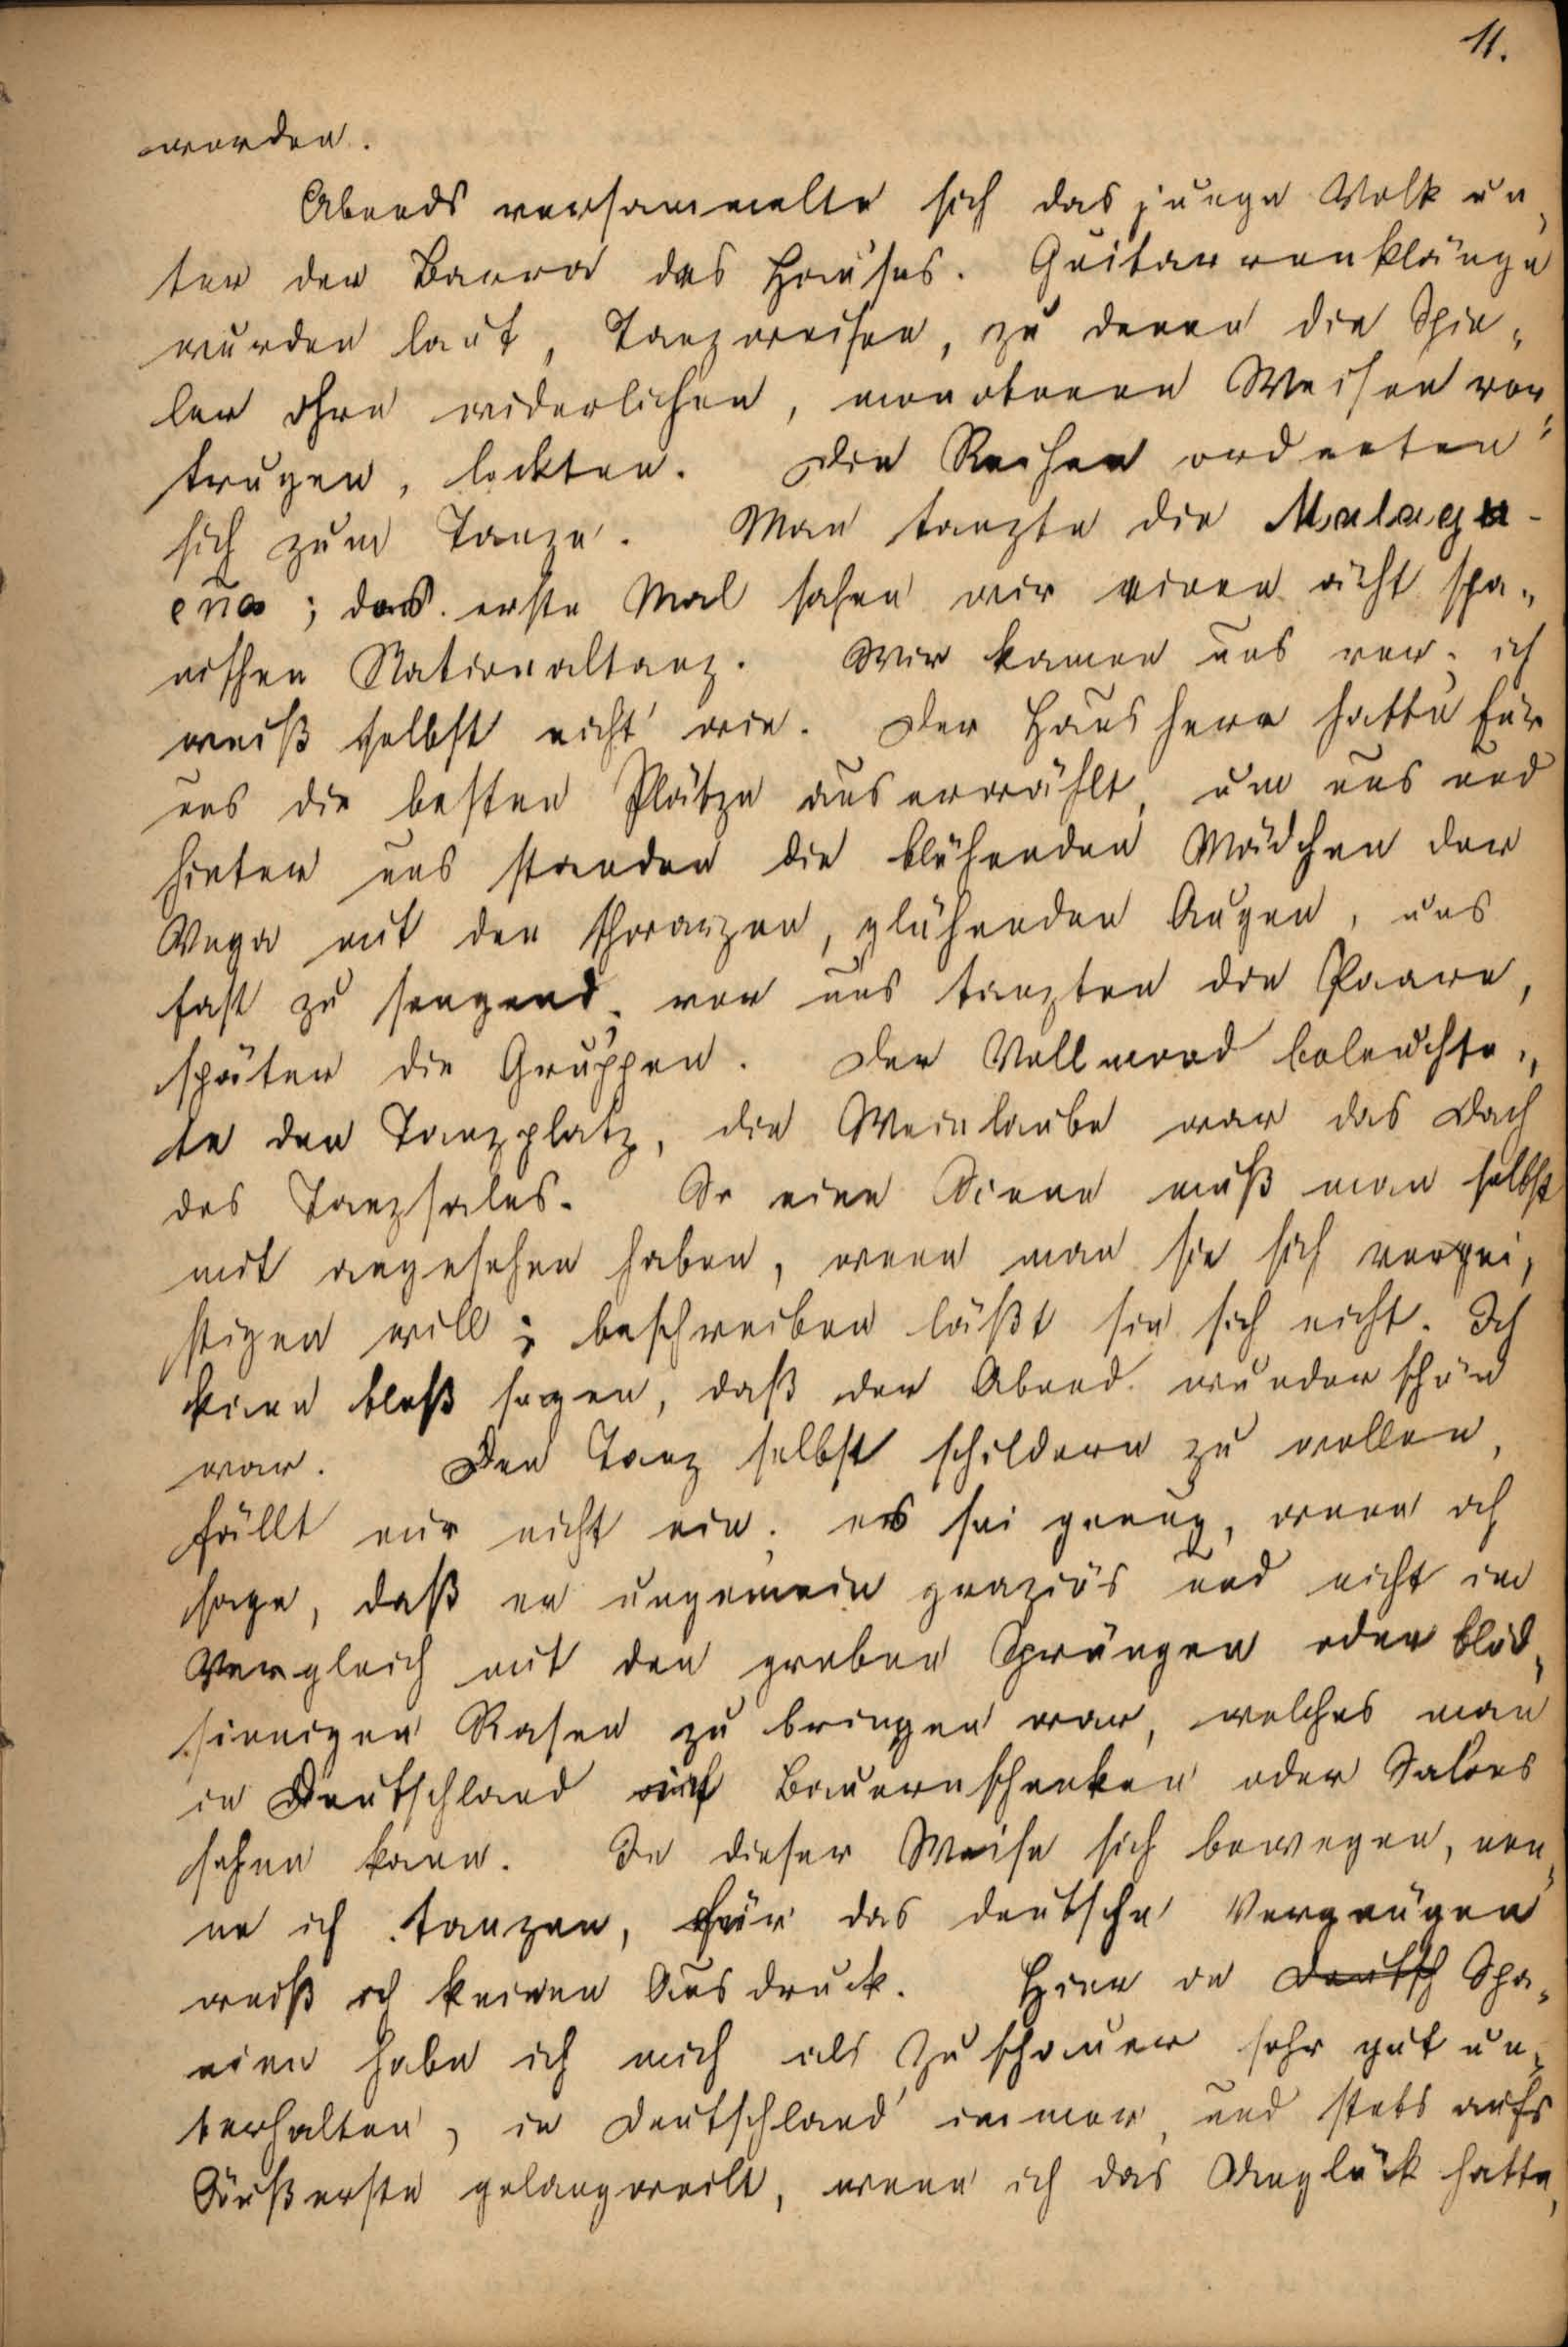 11.
worden.
Abends versammelte sich das junge Volk un„
ter der Barra des Hauses. Guitarrenklänge
wurden laut, Tanzweisen, zu denen die Spie„
ler ihre widerlichen, monotonen Weisen vor„
trugen, lockten. Die Reihen ordneten
sich zum Tanze. Man tanzte die Malagu-
eña; das erste Mal sahen wir einen ächt spa„
nischen Nationaltanz. Wir kamen uns vor, ich
weiß selbst nicht wie. Der Hausherr hatte für
uns die besten Plätze auserwählt, um uns und
hinter uns standen die blühenden Mädchen der
Vega mit den schwarzen, glühenden Augen, uns
fast zu sengend, vor uns tanzten die Paare,
später die Gruppen. Der Vollmond beleuchte„
te den Tanzplatz, die Weinlaube war das Dach
des Tanzsales. So eine Scene muß man selbst
mit angesehen haben, wenn man sie sich vergei„
stigen will; beschreiben läßt sie sich nicht. Ich
kann bloß sagen, daß der Abend wunderschön
war. Den Tanz selbst schildern zu wollen,
fällt mir nicht ein; es sei genug, wenn ich
sage, daß er ungemein graziös und nicht im
Vergleich mit den groben Sprüngen oder blöd„
sinnigen Rasen zu bringen war, welches man
in Deutschland auf Bauernschenken oder Salons
sehen kann. In dieser Weise sich bewegen, nen„
ne ich tanzen, für das deutsche Vergnügen
weiß ich keinen Ausdruck. Hier in Deutsch Spa„
nien habe ich mich als Zuschauer sehr gut un„
terhalten, in Deutschland immer, und stets aufs
Äußerste gelangweilt, wenn ich das Unglück hatte,